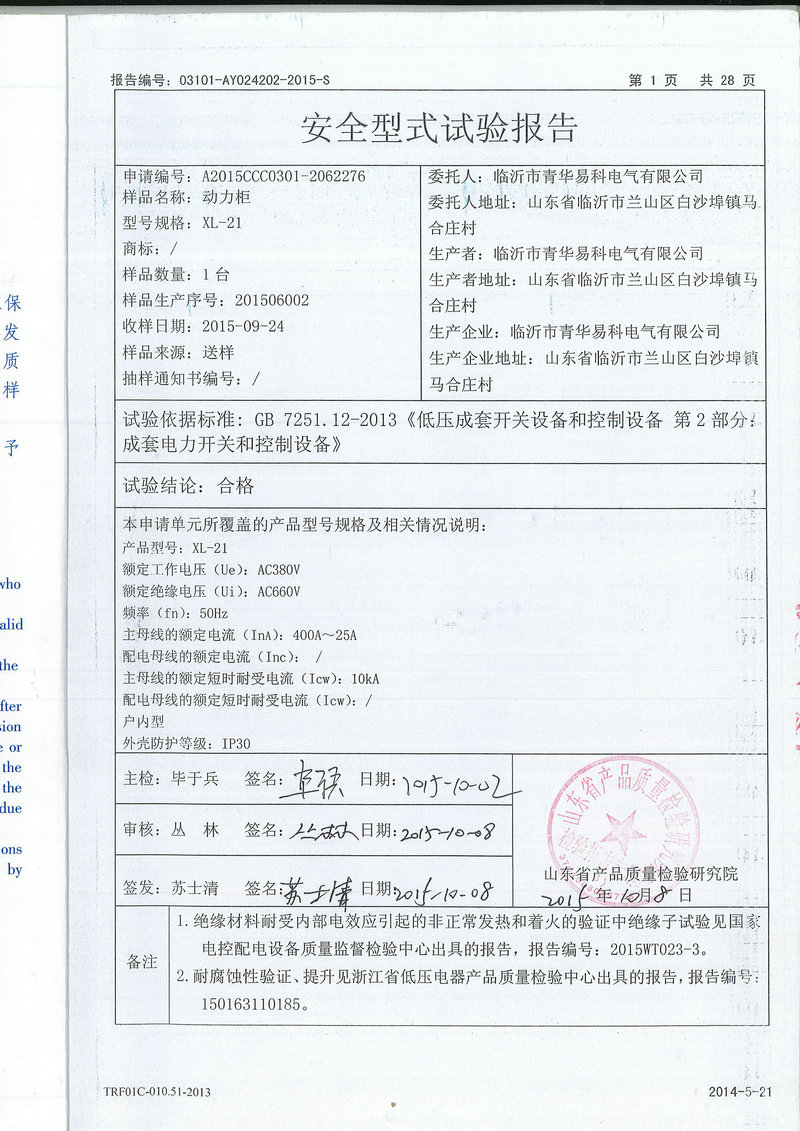 报告编号：03101-AY024202-2015-S
第 1 页 共 28 页
安全型式试验报告
申请编号：A2015CCC0301-2062276
样品名称：动力柜
型号规格：XL-21
商标：/
样品数量：1 台
样品生产序号：201506002
收样日期：2015-09-24
样品来源：送样
抽样通知书编号：/
委托人：临沂市青华易科电气有限公司
委托人地址：山东省临沂市兰山区白沙埠镇马
合庄村
生产者：临沂市青华易科电气有限公司
生产者地址：山东省临沂市兰山区白沙埠镇马
合庄村
生产企业：临沂市青华易科电气有限公司
生产企业地址：山东省临沂市兰山区白沙埠镇
马合庄村
试验依据标准：GB 7251.12-2013《低压成套开关设备和控制设备 第 2 部分：
成套电力开关和控制设备》
试验结论：合格
本申请单元所覆盖的产品型号规格及相关情况说明：
产品型号：XL-21
额定工作电压（Ue）：AC380V
额定绝缘电压（Ui）：AC660V
频率（fn）：50Hz
主母线的额定电流（InA）：400A～25A
配电母线的额定电流（Inc）： /
主母线的额定短时耐受电流（Icw）：10kA
配电母线的额定短时耐受电流（Icw）：/
户内型
外壳防护等级：IP30
主检：毕于兵 签名： 日期：2015-10-02
审核：丛 林 签名：丛林 日期：2015-10-08
签发：苏士清 签名：苏士清 日期：2015-10-08
山东省产品质量检验研究院
2015 年 10月 8 日
备注
1.绝缘材料耐受内部电效应引起的非正常发热和着火的验证中绝缘子试验见国家
电控配电设备质量监督检验中心出具的报告，报告编号：2015WT023-3。
2.耐腐蚀性验证、提升见浙江省低压电器产品质量检验中心出具的报告，报告编号：
150163110185。
TRF01C-010.51-2013
2014-5-21
保
发
质
样
予
who
alid
the
fter
sion
e or
the
the
due
ons
by